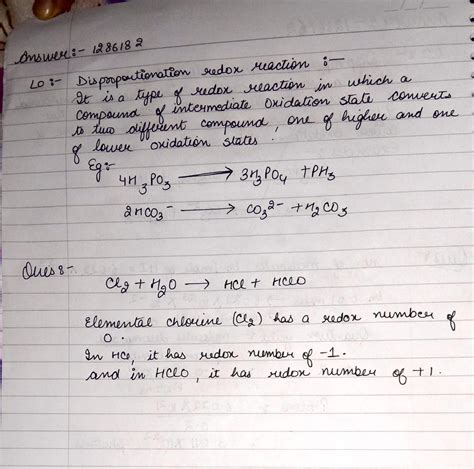 Answer:- 1286182
LO:- Disproportionation redox reaction :-
It is a type of redox reaction in which a
compound of intermediate oxidation state converts
to two different compound, one of higher and one
of lower oxidation states.
Eg:-
4H₃PO₃ ⟶ 3H₃PO₄ + PH₃
2HCO₃⁻ ⟶ CO₃²⁻ + H₂CO₃
Ques:-
Cl₂ + H₂O ⟶ HCl + HClO
Elemental chlorine (Cl₂) has a redox number of
0.
In HCl, it has redox number of -1.
and in HClO, it has redox number of +1.